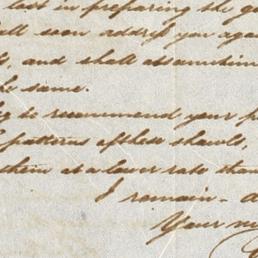 lost in preparing the g
all soon address you aga
, and shall at
he same.
to recommend your p
patterns of these shawls,
them at a lower rate than
I remain - d
Your